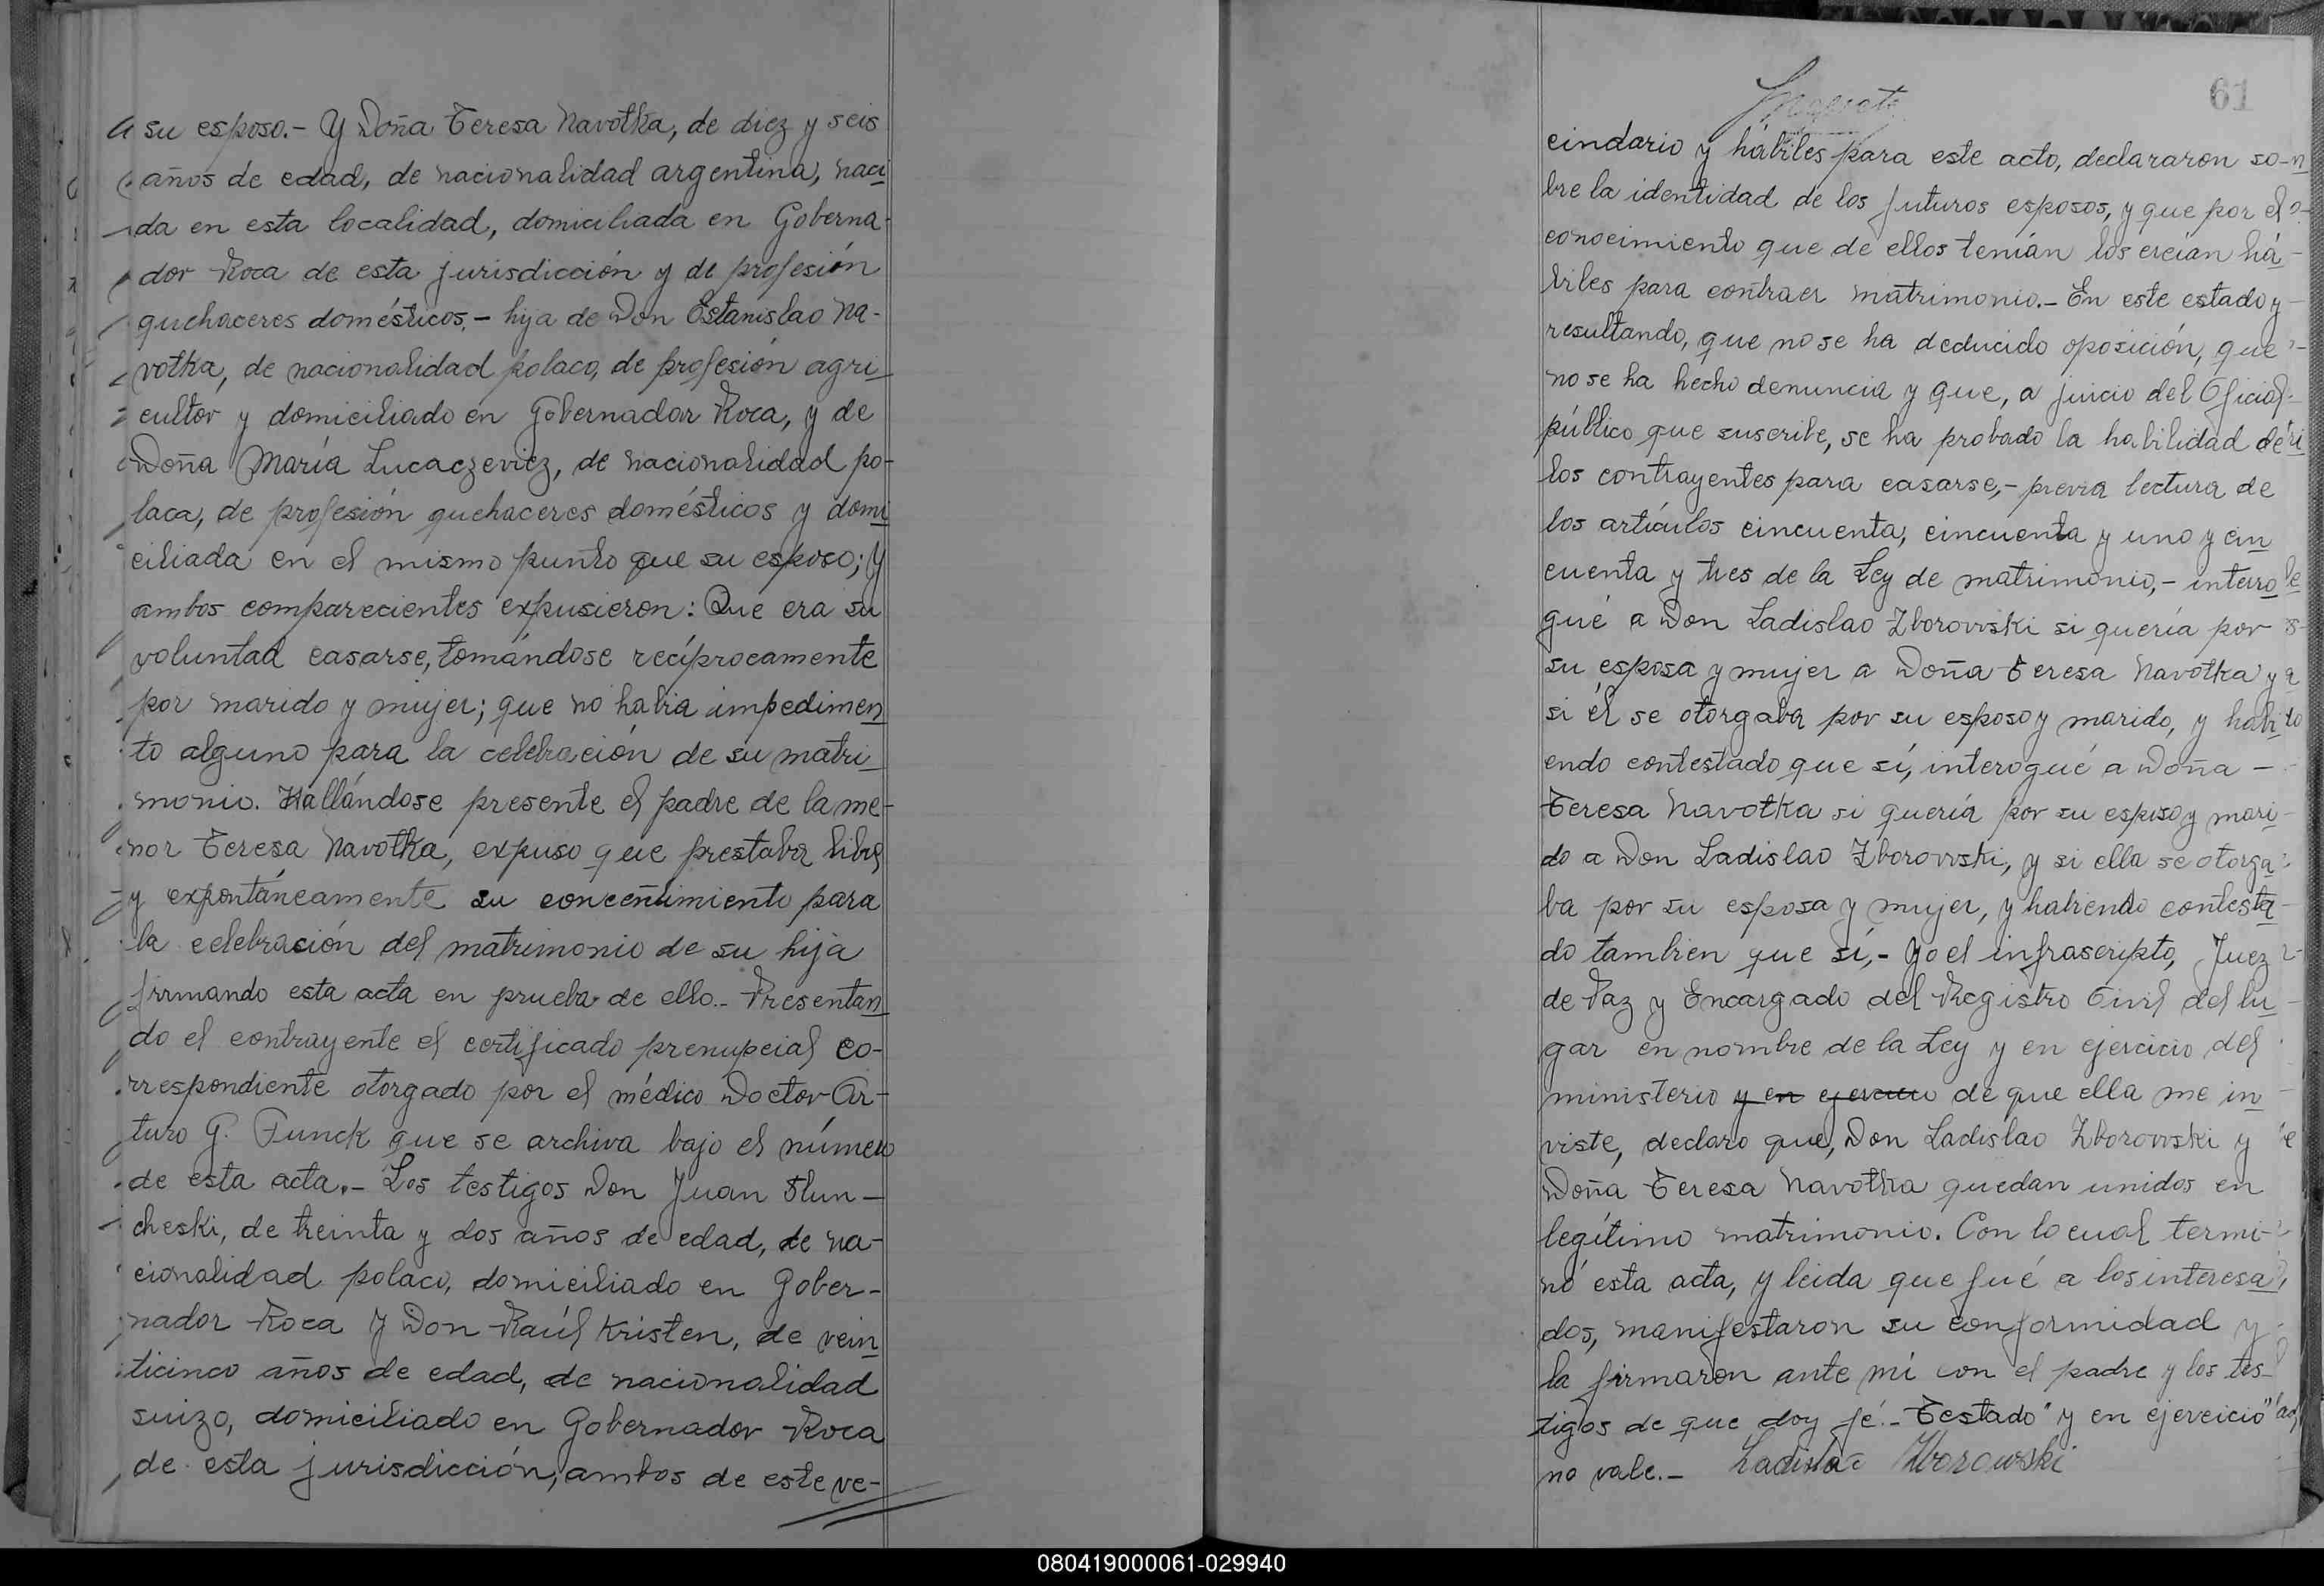 su esposo.- Y Doña Teresa Navotka, de diez y seis
años de edad, de nacionalidad argentina, naci
da en esta localidad, domiciliada en Goberna-
dor Roca de esta jurisdicción y de profesión
quehaceres domésticos,- hija de Don Estanislao Na-
votka, de nacionalidad polaco, de profesión agri
cultor y domiciliado en Gobernador Roca, y de
Doña María Lucaczevicz, de nacionalidad po-
laca, de profesión quehaceres domésticos y domi
ciliada en el mismo punto que su esposo; Y
ambos comparecientes expusieron: Que era su
voluntad casarse, tomándose recíprocamente
por marido y mujer; que no habia impedimen
to alguno para la celebración de su matri
monio. Hallándose presente el padre de la me-
nor Teresa Navotka, expuso que prestaba libre
y expontáneamente su concentimiento para
la celebración del matrimonio de su hija
firmando esta acta en prueba de ello.- Presentan
do el contrayente el certificado prenupcial co-
rrespondiente otorgado por el médico Doctor Ar-
turo G. Funck que se archiva bajo el número
de esta acta.- Los testigos Don Juan Slun-
cheski, de treinta y dos años de edad, de na-
cionalidad polaco, domiciliado en Gober-
nador Roca Y Don Raúl Kristen, de vein
ticinco años de edad, de nacionalidad
suizo, domiciliado en Gobernador Roca
de esta jurisdicción, ambos de este ve-
61
cindario y hábiles para este acto, declararon so-
bre la identidad de los futuros esposos, y que por el
conocimiento que de ellos tenían los creían há-
biles para contraer matrimonio.- En este estado y
resultando, que no se ha deducido oposición, que
no se ha hecho denuncia y que, a juicio del Oficial
público que suscribe, se ha probado la habilidad de
los contrayentes para casarse,- previa lectura de
los artículos cincuenta, cincuenta y uno y cin
cuenta y tres de la Ley de matrimonio,- interro
gué a Don Ladislao Zborovvski si quería por
su esposa y mujer a Doña Teresa Navotka y
si él se otorgaba por su esposo y marido, y habi
endo contestado que sí, interogué a Doña -
Teresa Navotka si quería por su esposo y mari
do a Don Ladislao Zborovvski, y si ella se otorga
ba por su esposa y mujer, y habiendo contesta
do tambien que sí,- Yo el infrascripto, Juez
de Paz y Encargado del Registro Civil del lu
gar en nombre de la Ley y en ejercicio del
ministerio y en ejercicio de que ella me in
viste, declaro que, Don Ladislao Zborovvski y
Doña Teresa Navotka quedan unidos en
legítimo matrimonio. Con lo cual termi-
nó esta acta, y leida que fué a los interesa
dos, manifestaron su conformidad y
la firmaron ante mí con el padre y los tes-
tigos de que doy fé.- Testado "y en ejercicio"
no vale.- Ladislao Zborowski
080419000061-029940